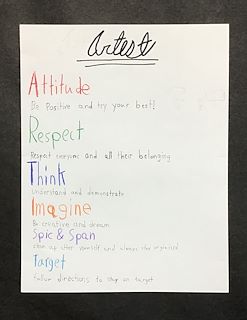 Artist
Attitude
Be Positive and try your best!
Respect
Respect everyone and all their belonging
Think
Understand and demonstrate
Imagine
Be creative and dream
Spic & Span
clean up after yourself and always stay organised
Target
Follow directions to stay on target